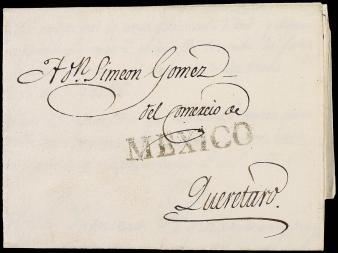 A Dn. Simeon Gomez
del Comercio de
MEXICO
Queretaro.